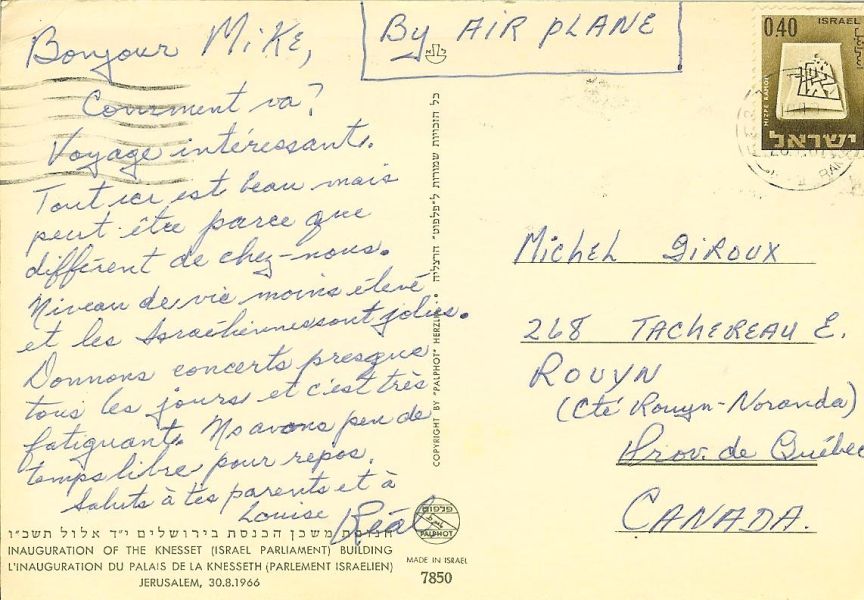 Bonjour Mike,
Comment va?
Voyage intéressant.
Tout ici est beau mais
peut-être parce que
différent de chez-nous.
Niveau de vie moins élevé
et les Israéliennes sont jolies.
Donnons concerts presque
tous les jours et c'est très
fatiguant. Ns avons peu de
temps libre pour repos.
Saluts à tes parents et à
Louise
Réal
חנוכת משכן הכנסת בירושלים י"ד אלול תשכ"ו
INAUGURATION OF THE KNESSET (ISRAEL PARLIAMENT) BUILDING
L'INAUGURATION DU PALAIS DE LA KNESSETH (PARLEMENT ISRAELIEN)
JERUSALEM, 30.8.1966
כל הזכויות שמורות ל"פלפוט" הרצליה
COPYRIGHT BY "PALPHOT" HERZLIA
פלפוט
PALPHOT
MADE IN ISRAEL
7850
By AIR PLANE
0.40
ISRAEL
MIZPE RAMON
ישראל
Michel GIROUX
268 TACHEREAU E.
ROUYN
(Cté Rouyn-Noranda)
Prov. de Québec
CANADA.